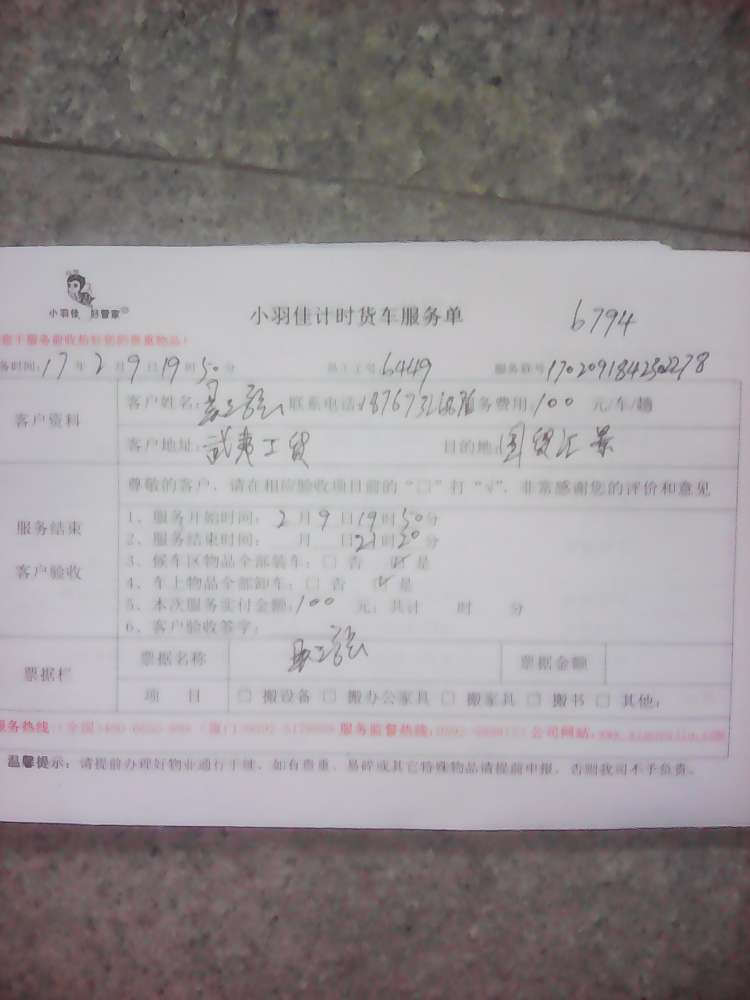 小羽佳 好管家
小羽佳计时货车服务单
6794
务时间:17年2月9日19时50分 员工工号6449 服务单号1702091842302278
客户资料
客户姓名: 联系电话: 服务费用:100 元/车/趟
客户地址:武夷工贸 目的地:国贸汇景
尊敬的客户，请在相应验收项目前的“□”打“√”，非常感谢您的评价和意见
服务结束
客户验收
1、服务开始时间：2月9日19时50分
2、服务结束时间： 月 日21时20分
3、候车区物品全部装车：□ 否 ☑ 是
4、车上物品全部卸车：□ 否 ☑ 是
5、本次服务实付金额：100 元；共计 时 分
6、客户验收签字：
票据栏
票据名称 票据金额
项 目 □ 搬设备 □ 搬办公家具 □ 搬家具 □ 搬书 □ 其他：
服务热线： 服务监督热线： 公司网站：
温馨提示：请提前办理好物业通行手续，如有贵重、易碎或其它特殊物品请提前申报，否则我司不予负责。